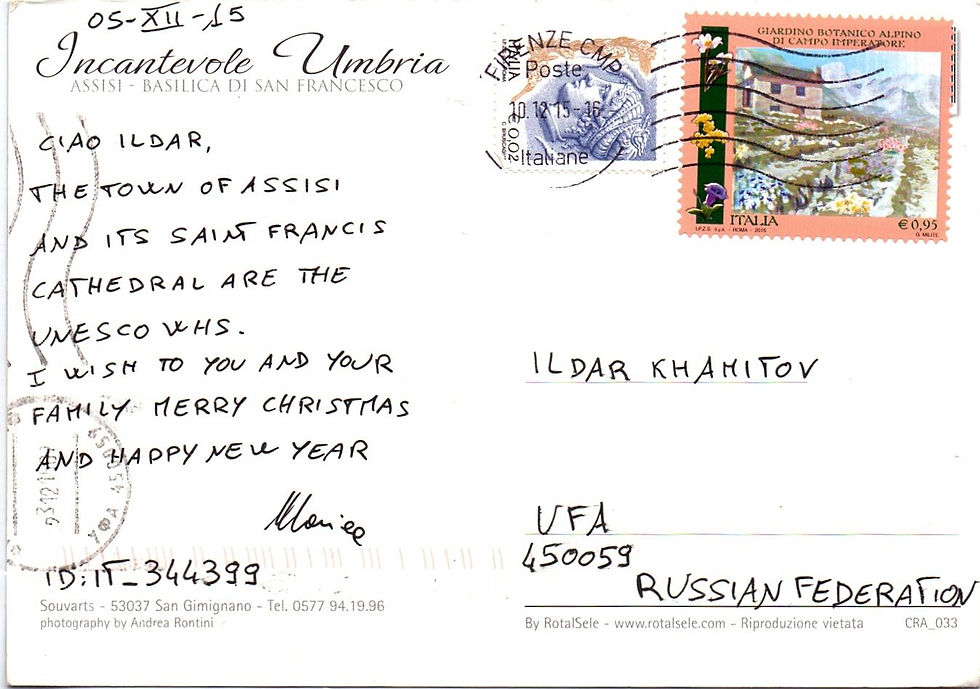 05-XII-15
Incantevole Umbria
ASSISI - BASILICA DI SAN FRANCESCO
CIAO ILDAR,
THE TOWN OF ASSISI
AND ITS SAINT FRANCIS
CATHEDRAL ARE THE
UNESCO WHS.
I WISH TO YOU AND YOUR
FAMILY MERRY CHRISTMAS
AND HAPPY NEW YEAR
ID: IT-344399
Souvarts - 53037 San Gimignano - Tel. 0577 94.19.96
photography by Andrea Rontini
FIRENZE CMP
Poste
10.12 15-16
Italiane
ITALIA
€0,02
GIARDINO BOTANICO ALPINO
DI CAMPO IMPERATORE
ITALIA
€ 0,95
I.P.Z.S. S.p.A. - ROMA - 2015
ILDAR KHAMITOV
UFA
450059
RUSSIAN FEDERATION
By RotalSele - www.rotalsele.com - Riproduzione vietata
CRA_033
УФА